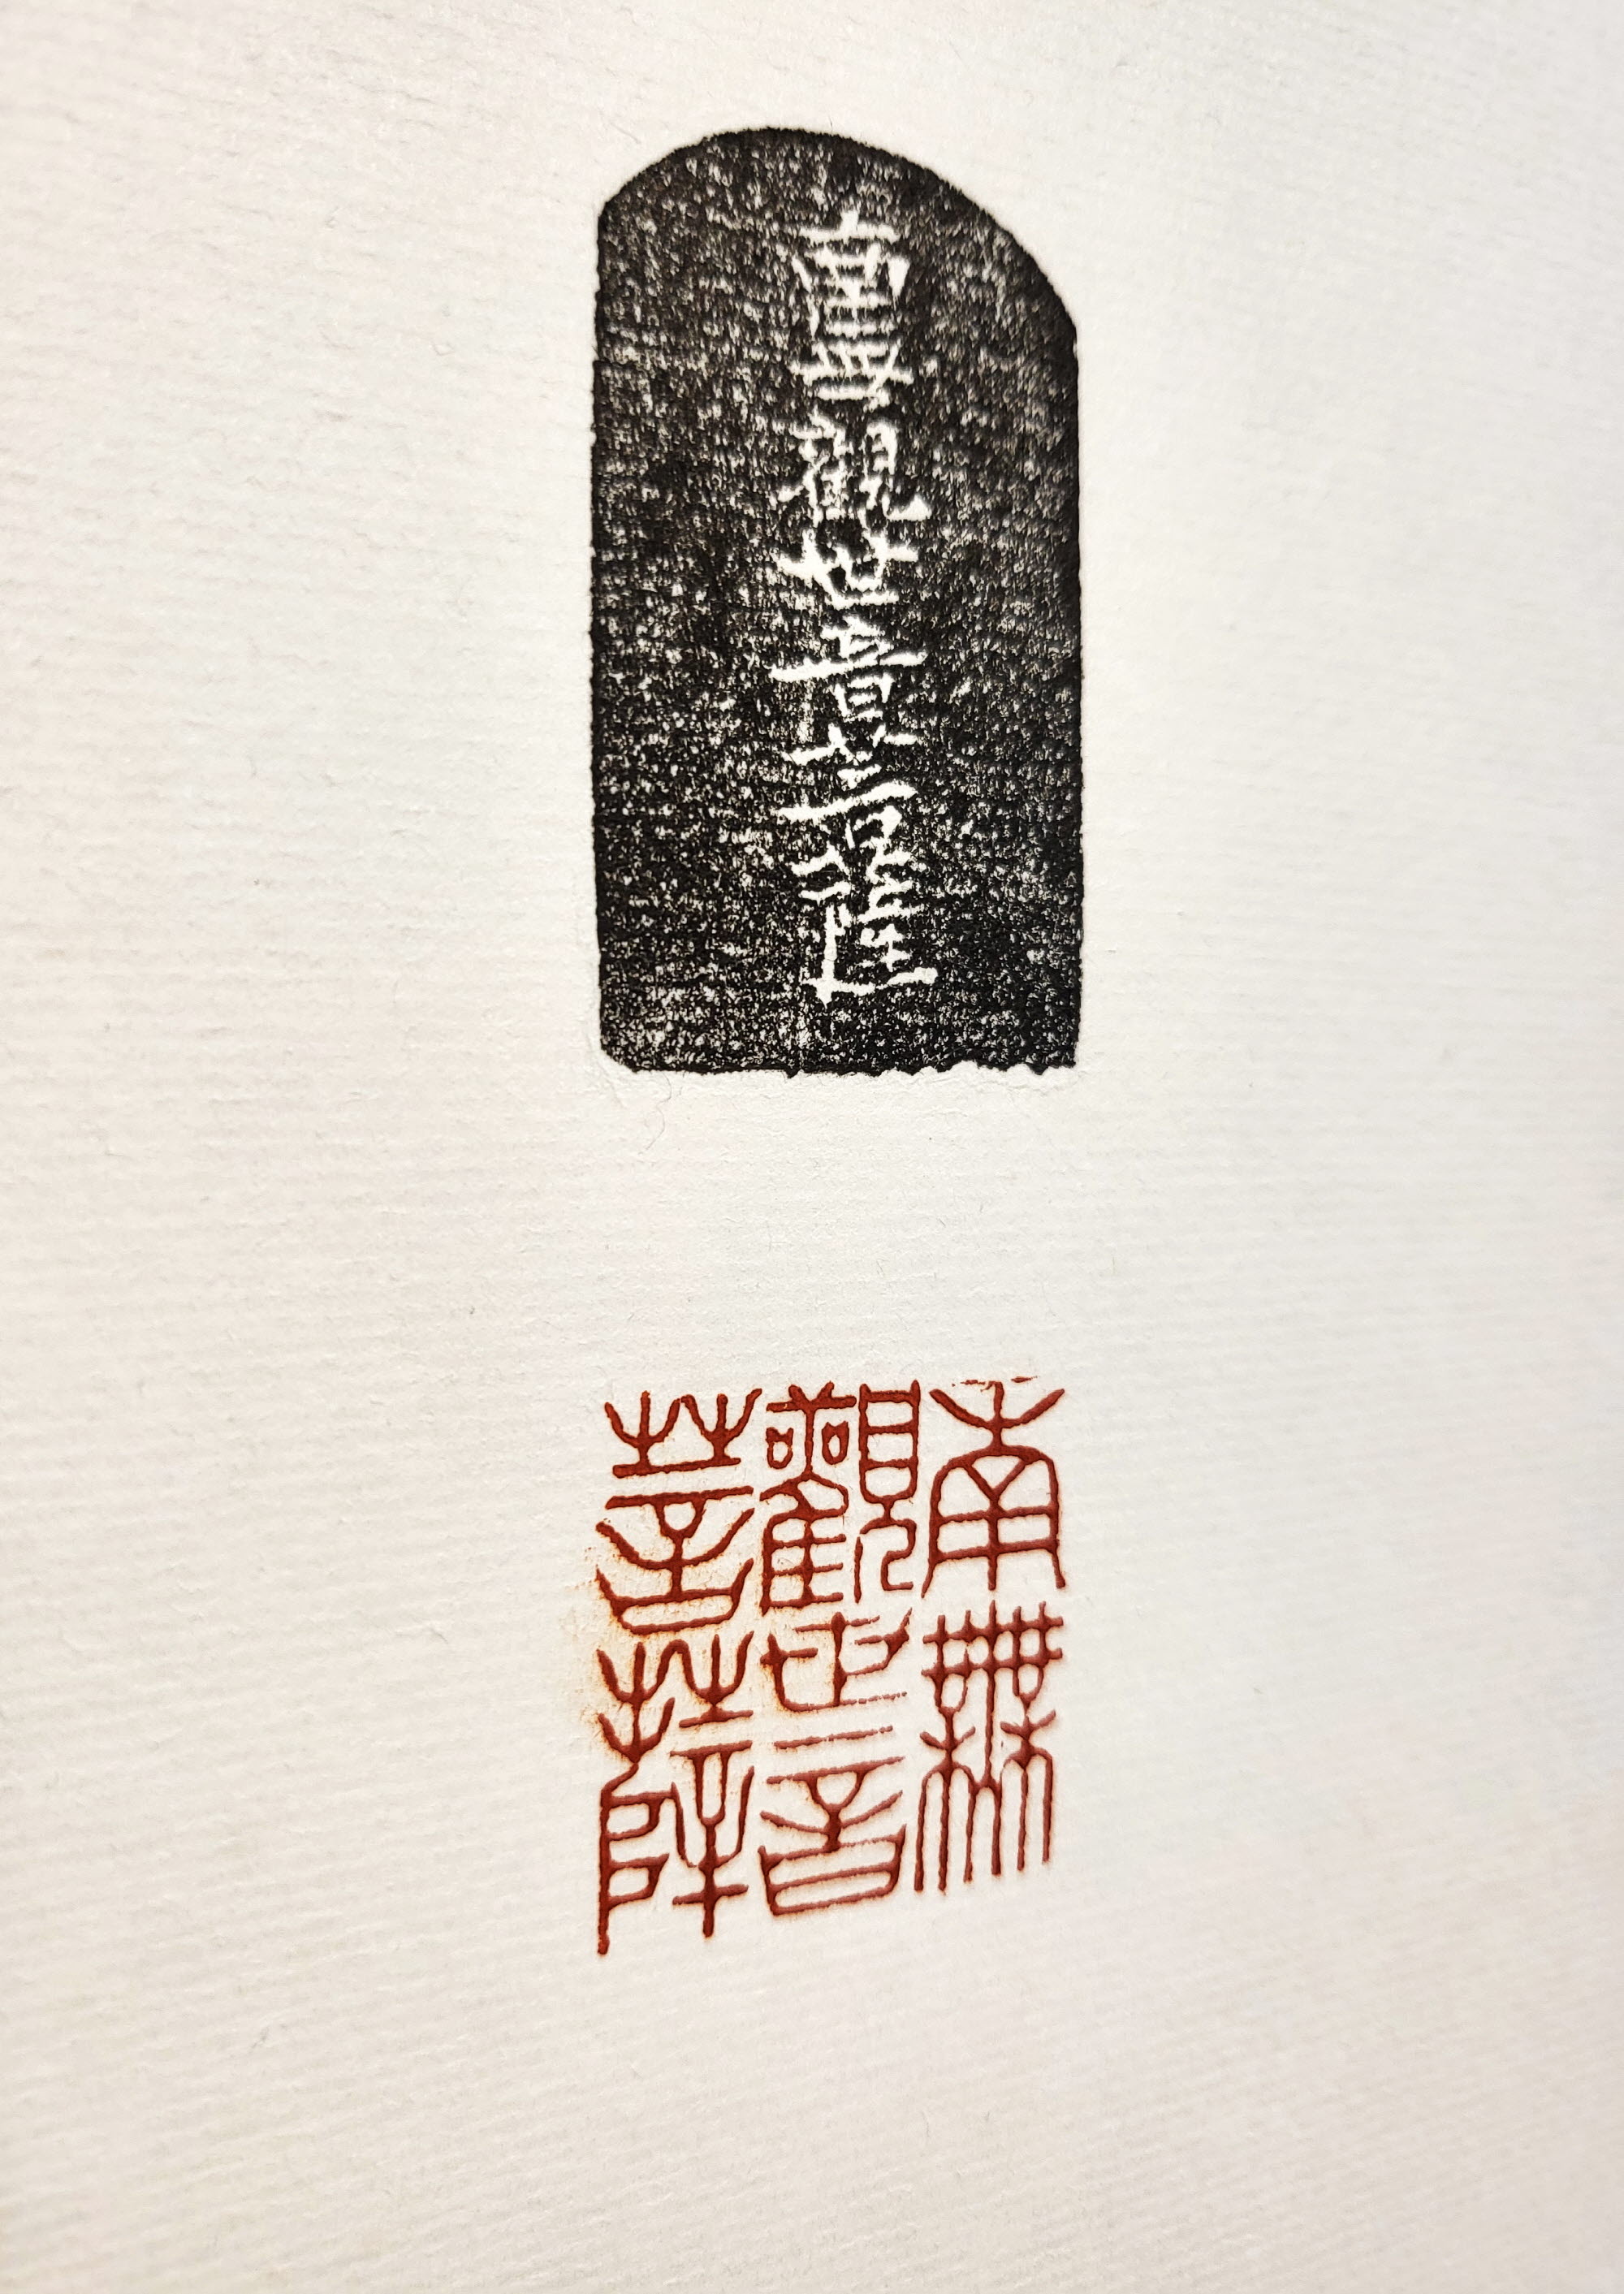 南無觀世音菩薩
南無
觀世音
菩薩